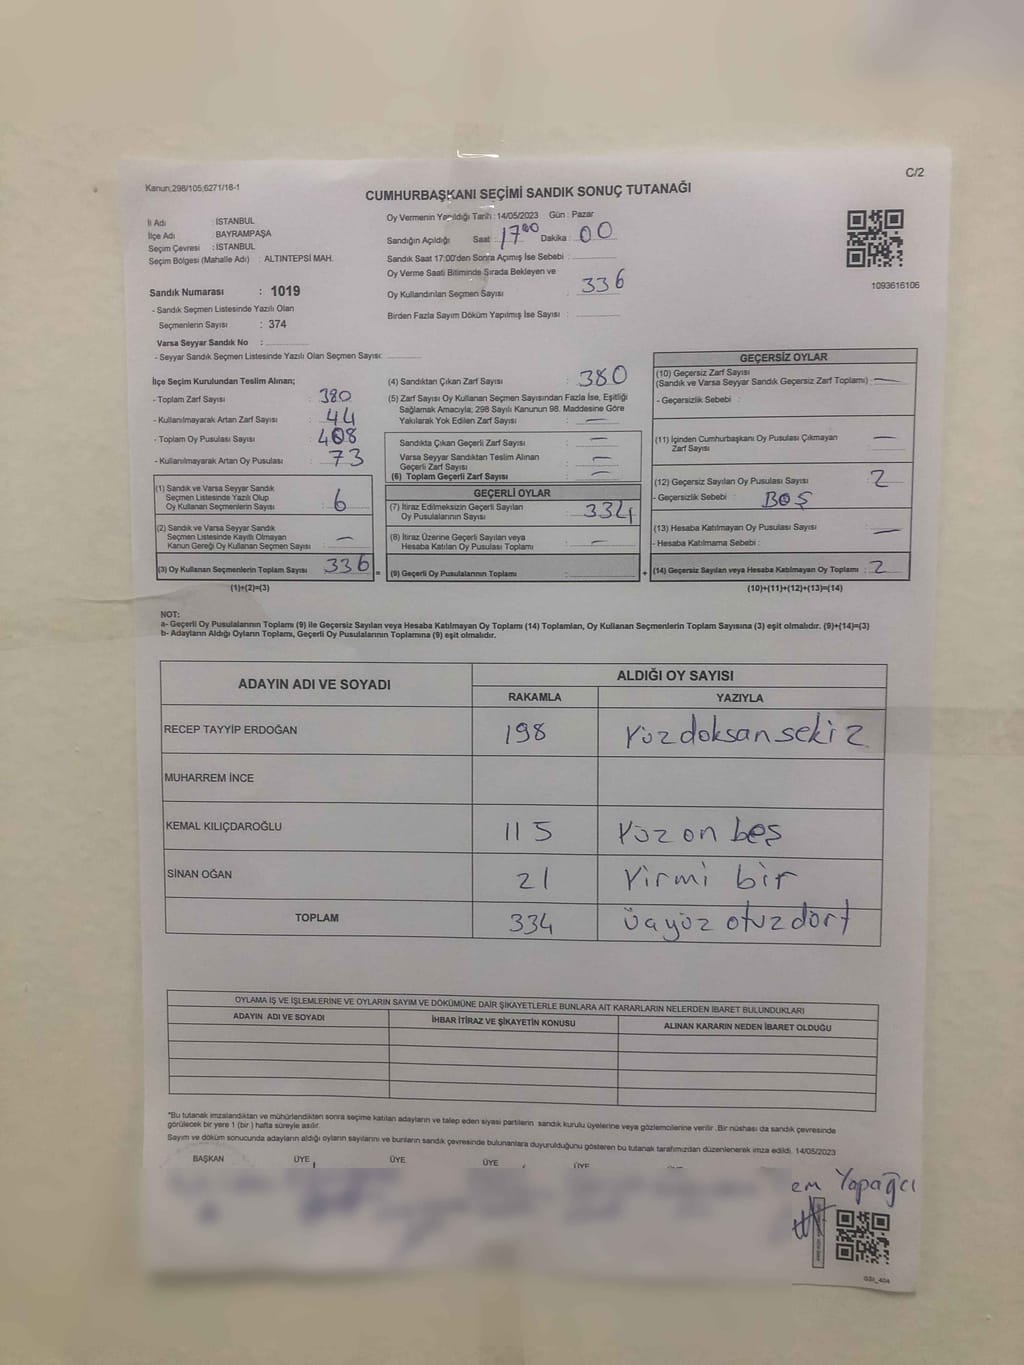 Kanun;298/105;6271/18-1
C/2
CUMHURBAŞKANI SEÇİMİ SANDIK SONUÇ TUTANAĞI
İl Adı : İSTANBUL
İlçe Adı : BAYRAMPAŞA
Seçim Çevresi : İSTANBUL
Seçim Bölgesi (Mahalle Adı) : ALTINTEPSİ MAH.
Sandık Numarası : 1019
- Sandık Seçmen Listesinde Yazılı Olan
Seçmenlerin Sayısı : 374
Varsa Seyyar Sandık No :
- Seyyar Sandık Seçmen Listesinde Yazılı Olan Seçmen Sayısı:
Oy Vermenin Yapıldığı Tarih : 14/05/2023 Gün : Pazar
Sandığın Açıldığı Saat : 17 00 Dakika : 00
Sandık Saat 17:00'den Sonra Açımış İse Sebebi :
Oy Verme Saati Bitiminde Sırada Bekleyen ve
Oy Kullandırılan Seçmen Sayısı : 336
Birden Fazla Sayım Döküm Yapılmış İse Sayısı :
1093616106
İlçe Seçim Kurulundan Teslim Alınan;
- Toplam Zarf Sayısı : 380
- Kullanılmayarak Artan Zarf Sayısı : 44
- Toplam Oy Pusulası Sayısı : 408
- Kullanılmayarak Artan Oy Pusulası : 73
(1) Sandık ve Varsa Seyyar Sandık
Seçmen Listesinde Yazılı Olup
Oy Kullanan Seçmenlerin Sayısı : 6
(2) Sandık ve Varsa Seyyar Sandık
Seçmen Listesinde Kayıtlı Olmayan
Kanun Gereği Oy Kullanan Seçmen Sayısı : —
(3) Oy Kullanan Seçmenlerin Toplam Sayısı : 336
(1)+(2)=(3)
(4) Sandıktan Çıkan Zarf Sayısı : 380
(5) Zarf Sayısı Oy Kullanan Seçmen Sayısından Fazla İse, Eşitliği
Sağlamak Amacıyla; 298 Sayılı Kanunun 98. Maddesine Göre
Yakılarak Yok Edilen Zarf Sayısı : —
Sandıkta Çıkan Geçerli Zarf Sayısı : —
Varsa Seyyar Sandıktan Teslim Alınan
Geçerli Zarf Sayısı : —
(6) Toplam Geçerli Zarf Sayısı : —
GEÇERLİ OYLAR
(7) İtiraz Edilmeksizin Geçerli Sayılan
Oy Pusulalarının Sayısı : 334
(8) İtiraz Üzerine Geçerli Sayılan veya
Hesaba Katılan Oy Pusulası Toplamı : —
= (9) Geçerli Oy Pusulalarının Toplamı :
GEÇERSİZ OYLAR
(10) Geçersiz Zarf Sayısı
(Sandık ve Varsa Seyyar Sandık Geçersiz Zarf Toplamı) : —
- Geçersizlik Sebebi :
(11) İçinden Cumhurbaşkanı Oy Pusulası Çıkmayan
Zarf Sayısı : —
(12) Geçersiz Sayılan Oy Pusulası Sayısı : 2
- Geçersizlik Sebebi : BOŞ
(13) Hesaba Katılmayan Oy Pusulası Sayısı : —
- Hesaba Katılmama Sebebi :
+ (14) Geçersiz Sayılan veya Hesaba Katılmayan Oy Toplamı : 2
(10)+(11)+(12)+(13)=(14)
NOT:
a- Geçerli Oy Pusulalarının Toplamı (9) ile Geçersiz Sayılan veya Hesaba Katılmayan Oy Toplamı (14) Toplamları, Oy Kullanan Seçmenlerin Toplam Sayısına (3) eşit olmalıdır. (9)+(14)=(3)
b- Adayların Aldığı Oyların Toplamı, Geçerli Oy Pusulalarının Toplamına (9) eşit olmalıdır.
ADAYIN ADI VE SOYADI
ALDIĞI OY SAYISI
RAKAMLA YAZIYLA
RECEP TAYYİP ERDOĞAN 198 Yüzdoksansekiz
MUHARREM İNCE
KEMAL KILIÇDAROĞLU 115 Yüz on beş
SİNAN OĞAN 21 Yirmi bir
TOPLAM 334 üçyüz otuzdört
OYLAMA İŞ VE İŞLEMLERİNE VE OYLARIN SAYIM VE DÖKÜMÜNE DAİR ŞİKAYETLERLE BUNLARA AİT KARARLARIN NELERDEN İBARET BULUNDUKLARI
ADAYIN ADI VE SOYADI İHBAR İTİRAZ VE ŞİKAYETİN KONUSU ALINAN KARARIN NEDEN İBARET OLDUĞU
*Bu tutanak imzalandıktan ve mühürlendikten sonra seçime katılan adayların ve talep eden siyasi partilerin sandık kurulu üyelerine veya gözlemcilerine verilir .Bir nüshası da sandık çevresinde
görülecek bir yere 1 (bir ) hafta süreyle asılır.
Sayım ve döküm sonucunda adayların aldığı oyların sayılarını ve bunların sandık çevresinde bulunanlara duyurulduğunu gösteren bu tutanak tarafımızdan düzenlenerek imza edildi. 14/05/2023
BAŞKAN ÜYE ÜYE ÜYE ÜYE
em Yapağcı
GSI_404